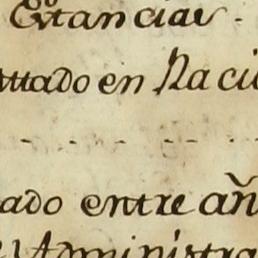 Estancias.
ttado en Naci
- - - - -
ado entre añ
Administra